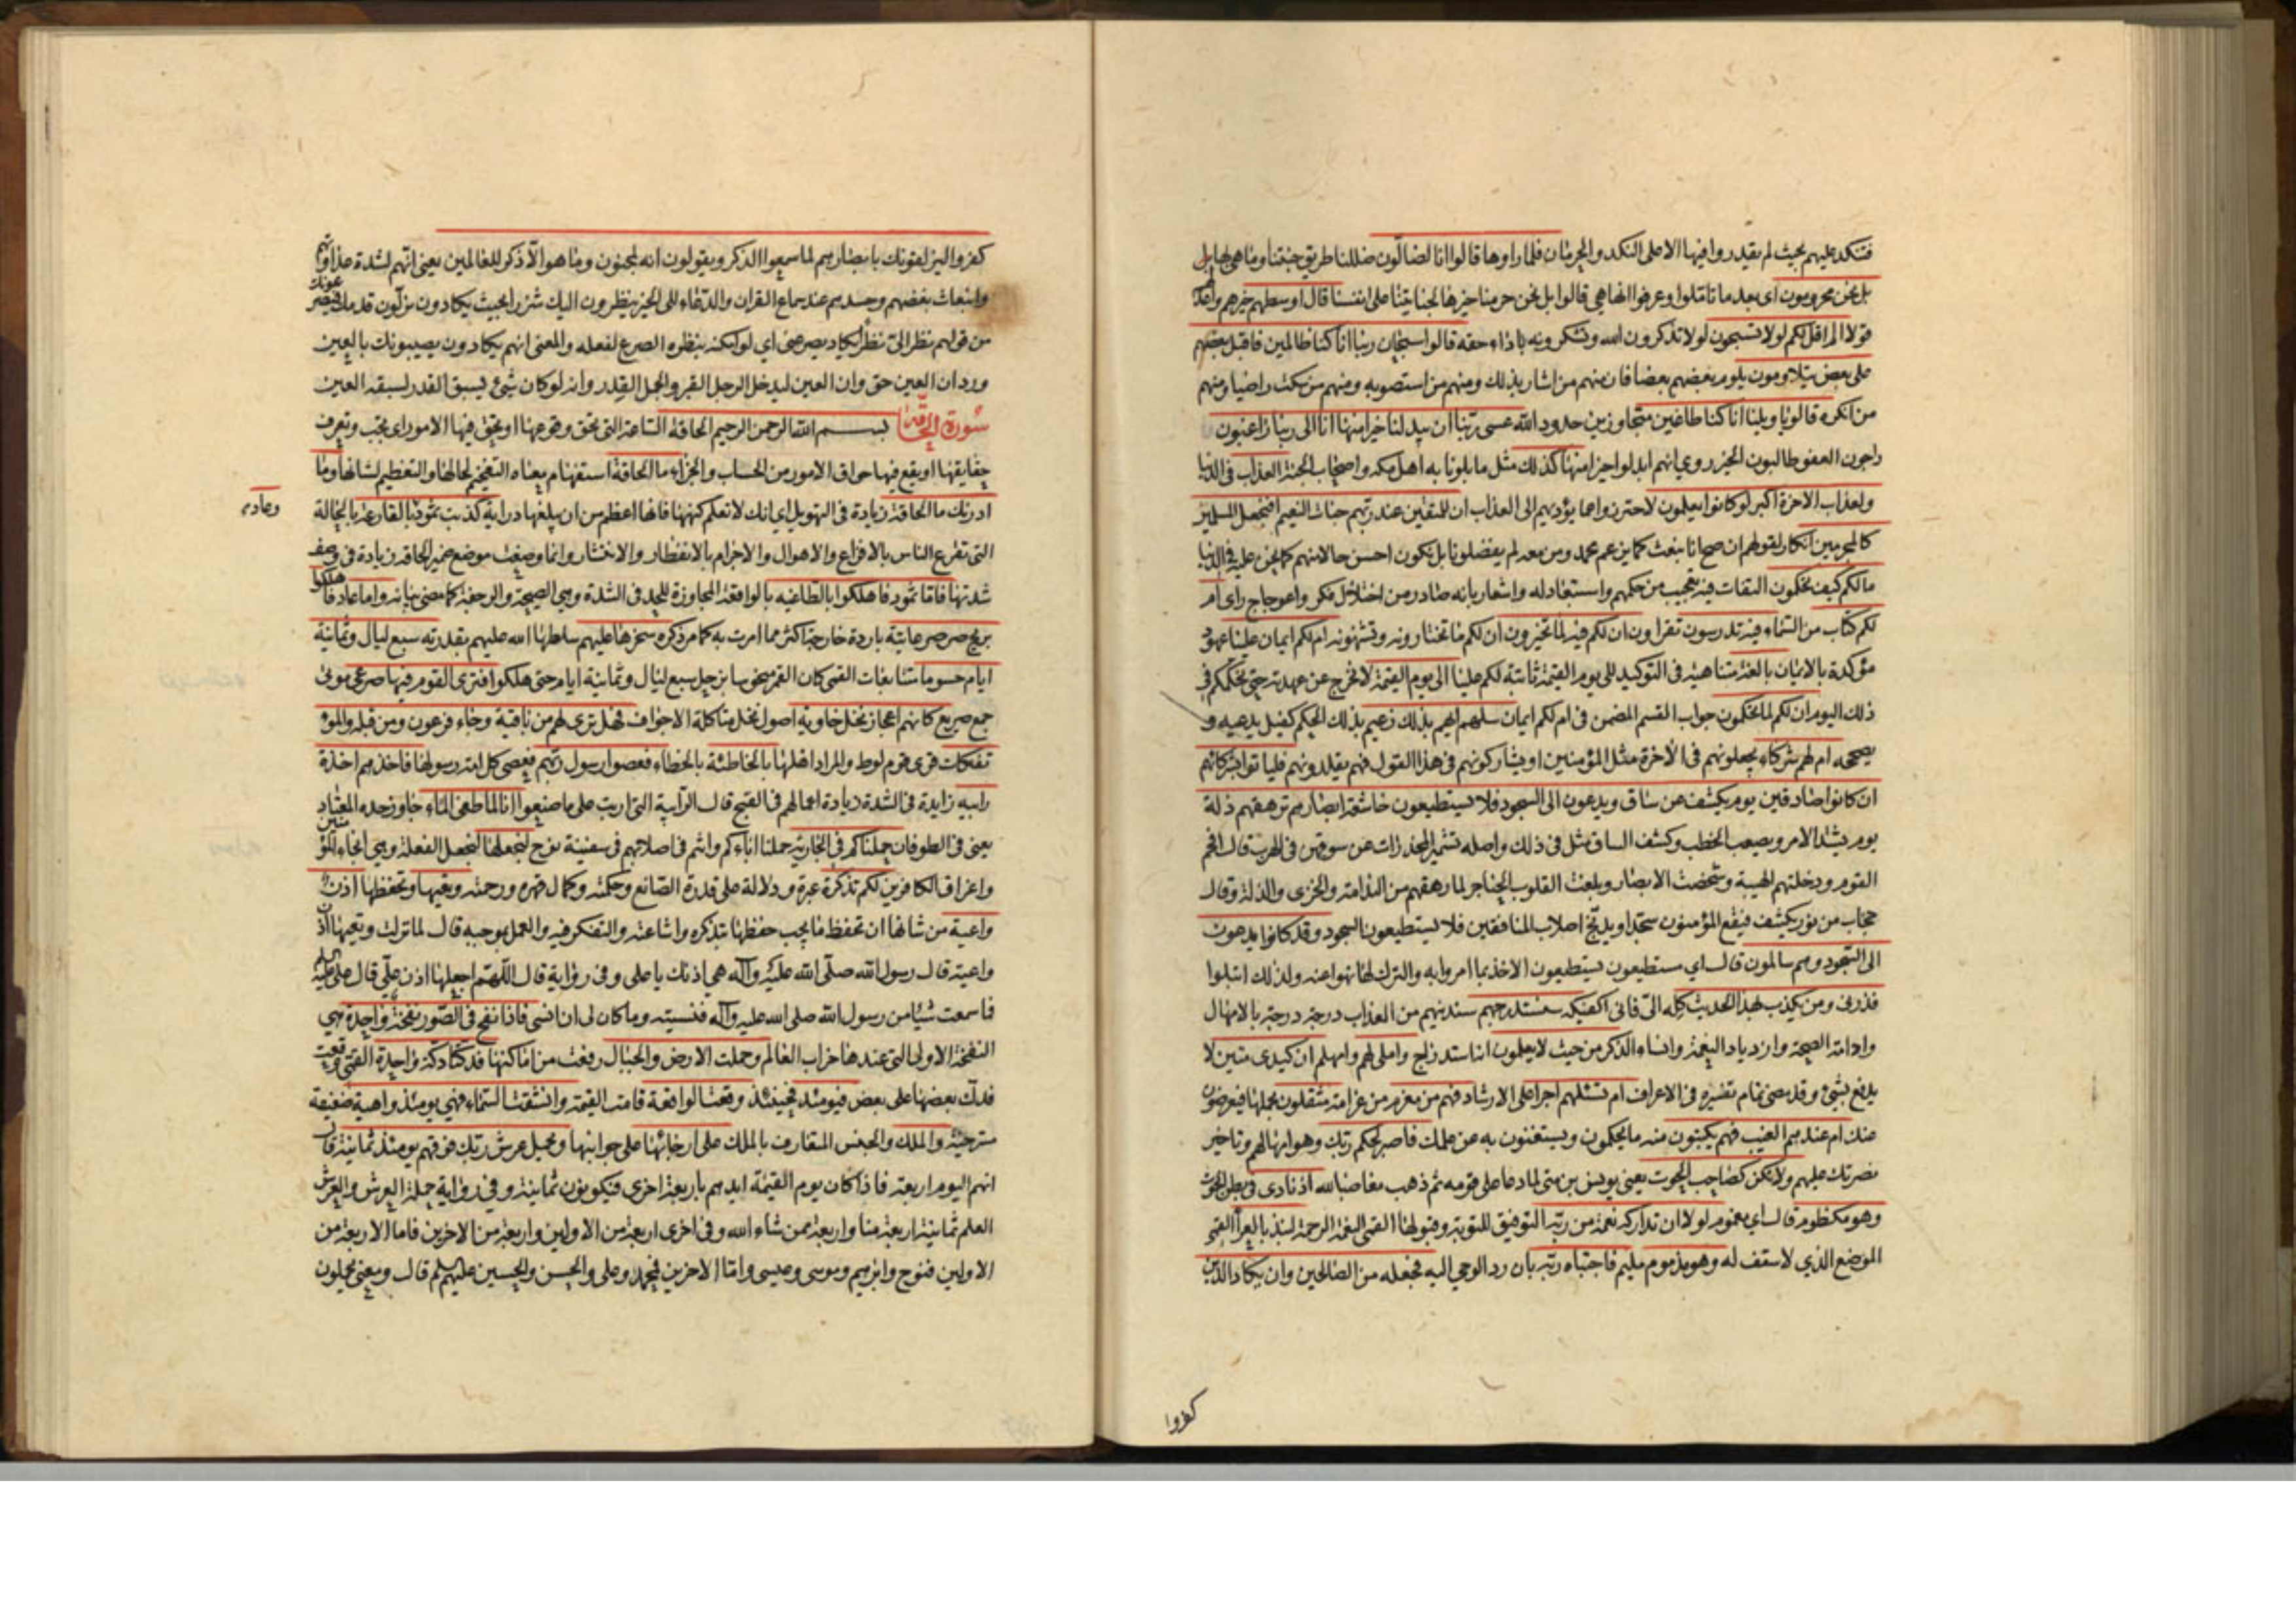 فتنكد عليهم بحيث لم يقدروا فيها الا على النكد والحرمان فلما راوها قالوا انا لضالون ضللنا طريق جنتنا وما هي بها بل
بل نحن محرومون اى بعد ما تاملوا وعرفوا انها هي قالوا بل نحن حرمنا خيرها لجنايتنا على انفسنا قال اوسطهم خيرهم واعد
قولا الم اقل لكم لولا تسبحون لولا تذكرون الله وتشكرونه باداء حقه قالوا سبحان ربنا انا كنا ظالمين فاقبل بعضهم
على بعض يتلاومون يلوم بعضهم بعضا فان منهم من اشار بذلك ومنهم من استصوبه ومنهم من سكت راضيا ومنهم
من انكره قالوا يا ويلنا انا كنا طاغين متجاوزين حدود الله عسى ربنا ان يبدلنا خيرا منها انا الى ربنا راغبون
راجون العفو طالبون الخير روي انهم ابدلوا خيرا منها كذلك مثل ما بلونا به اهل مكه واصحاب الجنة العذاب فى الدنيا
ولعذاب الاخرة اكبر لو كانوا يعلمون لاحترزوا عما يؤديهم الى العذاب ان للمتقين عند ربهم جنات النعيم افنجعل المسلمين
كالمجرمين انكار لقولهم ان صح انا نبعث كما يزعم محمد ومن معه لم يفضلونا بل نكون احسن حالا منهم كما نحن عليه فى الدنيا
مالكم كيف تحكمون التفات فيه تعجيب من حكمهم واستبعاد له واشعار بانه صادر من اختلال فكر واعوجاج راى ام
لكم كتاب من السماء فيه تدرسون تقراون ان لكم فيه لما تخيرون ان لكم ما تختارونه وتشتهونه ام لكم ايمان علينا عهود
مؤكدة بالايمان بالغة متناهية فى التوكيد الى يوم القيمة ثابتة لكم علينا الى يوم القيمة لا نخرج عن عهدته حتى نحكمكم فى
ذلك اليوم ان لكم لما تحكمون جواب القسم المضمن فى ام لكم ايمان سلهم ايهم بذلك زعيم بذلك الحكم كفيل يدعيه و
يصححه ام لهم شركاء يجعلونهم فى الاخرة مثل المؤمنين او يشاركونهم فى هذا القول فهم يقلدونهم فلياتوا بشركائهم
ان كانوا صادقين يوم يكشف عن ساق ويدعون الى السجود فلا يستطيعون خاشعة ابصارهم ترهقهم ذلة
يوم يشتد الامر ويصعب الخطب وكشف الساق مثل فى ذلك واصله تشمير المخدرات عن سوقهن فى الهرب قال افحم
القوم ودخلتهم الهيبة وشخصت الابصار وبلغت القلوب الحناجر لما رهقهم من الندامة والخزى والذلة وقال
حجاب من نور يكشف فيقع المؤمنون سجدا ويدمج اصلاب المنافقين فلا يستطيعون السجود وقد كانوا يدعون
الى السجود وهم سالمون قال اى مستطيعون يستطيعون الاخذ بما امروا به والترك لما نهوا عنه ولذلك ابتلوا
فذرنى ومن يكذب بهذا الحديث كله الى فانى اكفيكه سنستدرجهم سندنيهم من العذاب درجة درجة بالامهال
وادامة الصحة وازدياد النعمة وانساء الذكر من حيث لا يعلمون انه استدراج واملى لهم وامهلهم ان كيدى متين لا
يدفع بشىء وقد مضى تمام تفسيره فى الاعراف ام تسئلهم اجرا على الارشاد فهم من مغرم من غرامة مثقلون بحملها فيعرضون
عنك ام عندهم الغيب فهم يكتبون منه ما يحكمون ويستغنون به عن علمك فاصبر لحكم ربك وهو امهالهم وتاخير
نصرتك عليهم ولا تكن كصاحب الحوت يعنى يونس بن متى لما دعا على قومه ثم ذهب مغاضبا لله اذ نادى فى بطن الحوت
وهو مكظوم قال اى مغموم لولا ان تداركه نعمة من ربه التوفيق للتوبة وقبولها القمى النعمة الرحمة لنبذ بالعراء القمى
الموضع الذي لا سقف له وهو مذموم مليم فاجتباه ربه بان رد الوحى اليه فجعله من الصالحين وان يكاد الذين
كفروا
كفروا ليزلقونك بابصارهم لما سمعوا الذكر ويقولون انه لمجنون وما هو الا ذكر للعالمين يعنى انهم لشدة عداوتهم
وانبعاث بغضهم وحسدهم عند سماع القران والدعاء الى الخير ينظرون اليك شزرا بحيث يكادون يزلون قدمك فيصرعونك
من قولهم نظر الى نظرا يكاد يصرعنى اى لو امكنه بنظره الصرع لفعله والمعنى انهم يكادون يصيبونك بالعين
ورد ان العين حق وان العين ليدخل الرجل القبر والجمل القدر وانه لو كان شىء يسبق القدر لسبقه العين
سورة الحاقة بسم الله الرحمن الرحيم الحاقة الساعة التى تحق وقوعها او يحق فيها الامور اى يجب وتعرف
حقايقها او يقع فيها حواق الامور من الحساب والجزاء ما الحاقة استفهام معناه التفخيم لحالها والتعظيم لشانها وما
ادريك ما الحاقة زيادة فى التهويل اى انك لا تعلم كنهها فانها اعظم من ان يبلغها دراية كذبت ثمود بالقارعة بالحالة
وعاد م
التى تقرع الناس بالافزاع والاهوال والاجرام بالانفطار والانتثار وانما وضعت موضع ضمير الحاقة زيادة فى وصف
شدتها فاما ثمود فاهلكوا بالطاغيه بالواقعة المجاوزة للحد فى الشدة وهى الصيحة والرجفة كما مضى بيانه واما عاد فاهلكوا
بريح صرصر عاتية باردة خارجة اكثر مما امرت به كما مر ذكره سخرها عليهم سلطها الله عليهم بقدرته سبع ليال وثمانية
ايام حسوما متتابعات القمى كان القمر منحوسا بزحل سبع ليال وثمانية ايام حتى هلكوا فترى القوم فيها صرعى موتى
جمع صريع كانهم اعجاز نخل خاوية اصول نخل متاكلة الاجواف فهل ترى لهم من باقية وجاء فرعون ومن قبله والمؤ
تفكات قرى قوم لوط والمراد اهلها بالخاطئة بالخطاء فعصوا رسول ربهم فعصى كل امة رسولها فاخذهم اخذة
رابيه زايدة فى الشدة زيادة اعمالهم فى القبح قال الرابية التى اربت على ما صنعوا انا لما طغى الماء جاوز حده المعتاد
يعنى فى الطوفان حملناكم فى الجارية حملنا اباءكم وانتم فى اصلابهم فى سفينة نوح لنجعلها لنجعل الفعلة وهى انجاء المؤمنين
واغراق الكافرين لكم تذكرة عبرة ودلالة على قدرة الصانع وحكمته وكمال قهره ورحمته وتعيها وتحفظها اذن
واعية من شانها ان تحفظ ما يجب حفظها بتذكره واشاعته والتفكر فيه والعمل بموجبه قال لما نزلت وتعيها اذن
واعية قال رسول الله صلى الله عليه وآله هى اذنك يا على وفى رواية قال اللهم اجعلها اذن على قال على عليه السلم
فما سمعت شيئا من رسول الله صلى الله عليه وآله فنسيته وما كان لى ان انسى فاذا نفخ فى الصور نفخة واحدة هى
النفخة الاولى التى عندها خراب العالم وحملت الارض والجبال رفعت من اماكنها فدكتا دكة واحدة القمى وقعت
فدك بعضها على بعض فيومئذ فحينئذ وقعت الواقعة قامت القيمة وانشقت السماء فهى يومئذ واهية ضعيفة
مسترخية والملك والجنس المتعارف بالملك على ارجائها على جوانبها ويحمل عرش ربك فوقهم يومئذ ثمانية قال
انهم اليوم اربعة فاذا كان يوم القيمة ايدهم باربعة اخرى فيكونون ثمانية وفى رواية حملة العرش والعرش
العلم ثمانية اربعة منا واربعة ممن شاء الله وفى اخرى اربعة من الاولين واربعة من الاخرين فاما الاربعة من
الاولين فنوح وابرهيم وموسى وعيسى واما الاخرين فمحمد وعلى والحسن والحسين عليهم السلم قال ومعنى يحملون